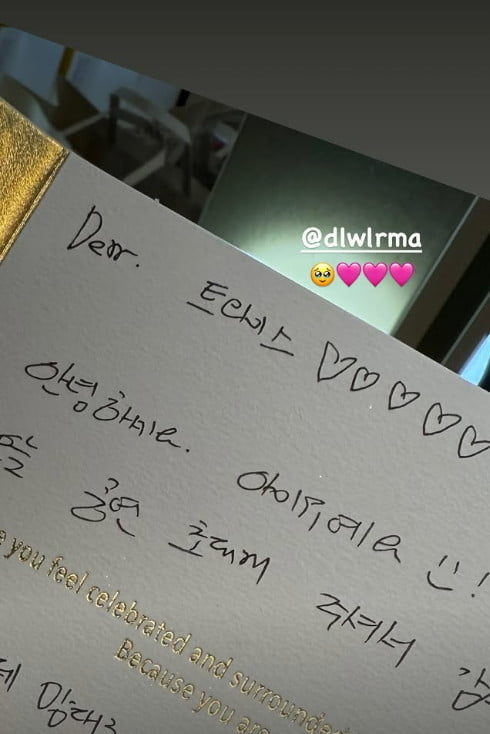 @dlwlrma
🥹🩷🩷🩷
Dear. 트와이스 ♡♡♡♡♡
안녕하세요. 아이유예요 :)!
공연 초대해 주셔서 감
you feel celebrated and surrounded
Because you are